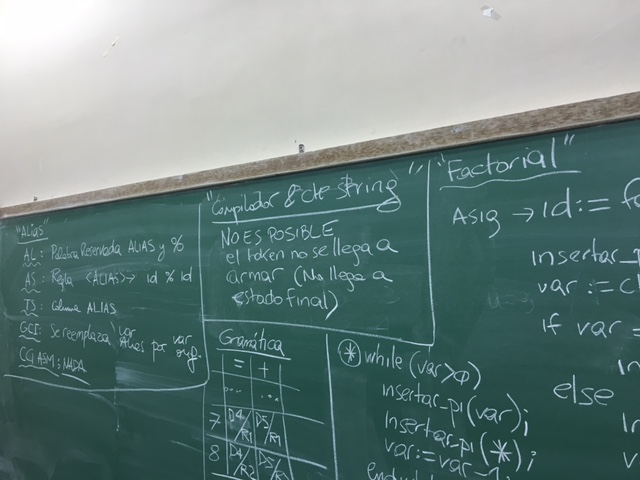 "Alias"
AL: Palabra Reservada ALIAS y %
AS: Regla <ALIAS> → id % id
TS: Columna ALIAS
GCI: Se reemplaza var
Alias por var orig.
CG ASM: NADA
"Compilador & cte string"
NO ES POSIBLE
el token no se llega a
armar (No llega a
estado final)
Gramática
= +
... ...
7 D4/R1 D5/R1
8 D4/R2 D5/R2
"Factorial"
Asig → id :=
insertar_p
var :=
if var =
else
* while (var>0)
insertar_pi(var);
insertar_pi(*);
var:=var-1;